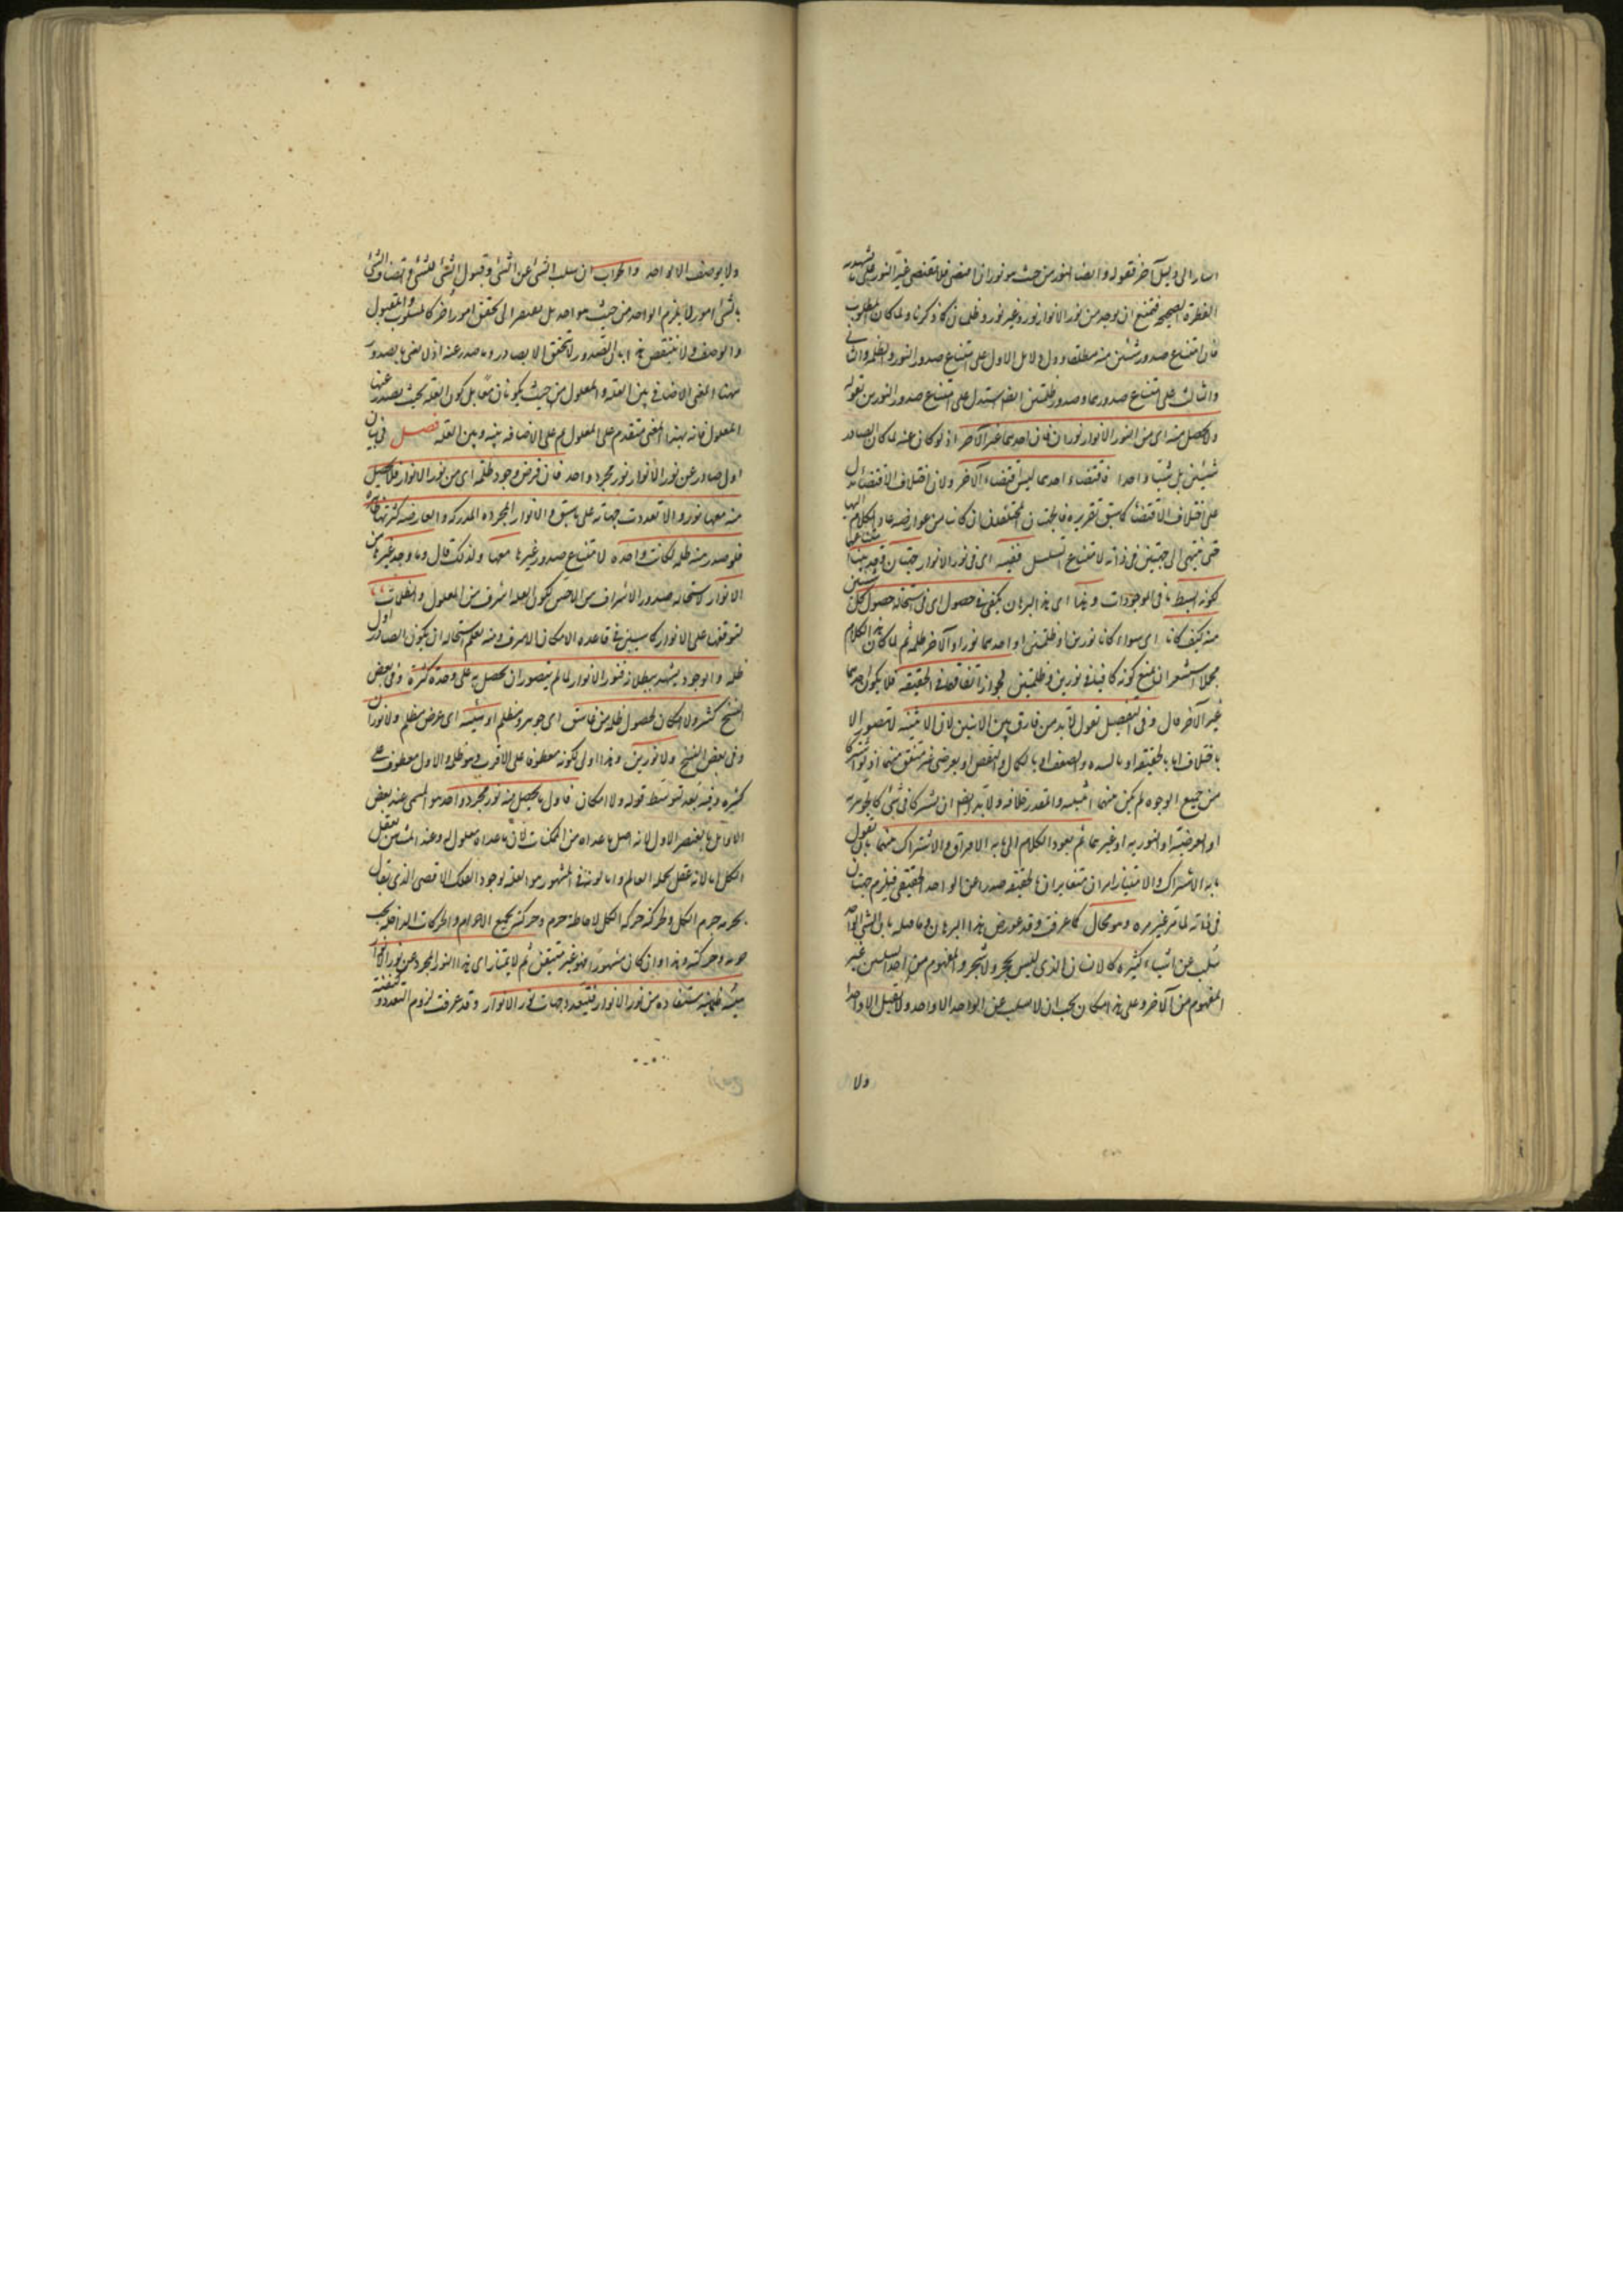 اشار الى دليل آخر بقوله وايضا النور من حيث هو نور ان اقتضى فلا يقتضى غير النور على ما يشهد به
الفطرة الصحيحة فيمتنع ان يوجد من نور الانوار نور وغير نور وظلمتان كما ذكرنا ولما كان المطلوب
بيان امتناع صدور شيئين منه مطلقا ودل الدلائل الاول على امتناع صدور النور والظلمة والثانى
والثالث على امتناع صدورهما وصدور ظلمتين ايضا استدل على امتناع صدور النورين بقوله
ولا يحصل منه اى من النور الانوار نوران فان احدهما غير الآخر اذ لو كان عينه لما كان الصادر
شيئين بل شيئا واحدا فاقتضاء احدهما ليس اقتضاء الآخر ولان اختلاف الاقتضاء يدل
على اختلاف الاقتضاء كما سبق تقريره فالجهتان المختلفتان ان كانتا من عوارضه عاد الكلام اليهما
حتى ينتهى الى جهتين فى ذاته لامتناع التسلسل ففيه اى فى نور الانوار جهتان وقد بينا امتناعهما
لكونه ابسط ما فى الموجودات وهذا اى هذا البرهان يكفى فى حصول اى فى استحالة حصول كل شيئين
منه كيف كانا اى سواء كانا نورين او ظلمتين او احدهما نورا والآخر ظلمة ثم لما كان هذا الكلام
مجملا استشعر ان يمنع كونه كافيا فى نورين وظلمتين لجواز اتفاقهما فى الحقيقة فلا يكون احدهما
غير الآخر قال وفى التفصيل نقول لا بد من فارق بين الاثنين لان الاثنينية لا تتصور الا
باختلاف اما بالحقيقة او بالشدة والضعف او بالكمال والنقص او بعرضى غير متفق بينهما اذ لو اشتركا
من جميع الوجوه لم يكن بينهما اثنينية والمقدر خلافه ولا بد ايضا ان يشتركا فى شئ كالجوهرية
او العرضية او النورية او غيرهما ثم يعود الكلام الى ما به الافتراق والاشتراك بينهما بان نقول
ما به الاشتراك والامتياز امران متغايران بالحقيقة صدرا عن الواحد الحقيقى فيلزم جهتان
فى ذاته لما مر غير مرة وهو محال كما عرفت وقد عورض هذا البرهان وما قبله بان الشئ الواحد
يسلب عن اشياء كثيرة كالانسان الذى ليس بحجر ولا شجر والمفهوم من احد السلبين غير
المفهوم من الآخر وعلى هذا كان يجب ان لا يسلب عن الواحد الا واحد ولا يقبل الا واحدا
ولا
ولا يوصف الا بواحد والجواب ان سلب الشئ عن الشئ وقبول الشئ للشئ واتصاف الشئ
بالشئ امور لا يلزم الواحد من حيث هو واحد بل يفتقر الى تحقق امور أخر كالمسلوب والمقبول
والوصف ولا ينتقض هذا بان الصدور لا يتحقق الا بصادر وما صدر عنه اذ لا نعنى بالصدور
ههنا المعنى الاضافى بين العلة والمعلول من حيث يكونان معا بل كون العلة بحيث يصدر عنها
المعلول فانه بهذا المعنى متقدم على المعلول ثم على الاضافة بينه وبين العلة فصل فى بيان
اول صادر عن نور الانوار نور مجرد واحد فان فرض وجود ظلمة اى من نور الانوار فلا يحصل
منه معها نور والا تعددت جهاته على ما سبق والانوار المجردة المدركة والعارضة كثرتها ظاهرة
فلو صدر منه ظلمة لكانت واحدة لامتناع صدور غيرها معها ولذلك قال وما وجد غيرها من
الانوار لاستحالة صدور الاشراف من الاخس لكون العلة اشرف من المعلول والظلمات
لتوقفها على الانوار كما سيبين فى قاعدة الامكان الاشرف ومنه يعلم استحالة ان يكون الصادر الاول
ظلمة والوجود يشهد ببطلانه فنور الانوار لما لم يتصور ان يحصل به على وحدته كثرة وفى بعض
النسخ كثيرة ولا امكان لحصول ظلمة من غاسق اى جوهر مظلم او هيئة اى عرض مظلم ولا نوران
وفى بعض النسخ ولا نورين وهذا اولى لكونه معطوفا على الاقرب وهو ظلمة والاول معطوف على
كثيرة وفيه بعد لتوسط قوله ولا امكان فاول ما يحصل منه نور مجرد واحد هو المسمى عند بعض
الاوائل بالعنصر الاول لانه اصل ما عداه من الممكنات لان ما عداه معلول له وعند المشائين بعقل
الكل اما لانه عقل لجملة العالم واما لانه فى المشهور هو العلة لوجود الفلك الاقصى الذى يقال
لجرمه جرم الكل ولحركته حركة الكل لاحاطة جرمه وحركته بجميع الاجرام والحركات الداخلة تحت
جرمه وحركته وهذا وان كان مشهورا فهو غير متيقن ثم لا يمتاز اى هذا النور المجرد عن نور الانوار
بهيئة ظلمانية مستفادة من نور الانوار فيتعدد جهات نور الانوار وقد عرفت لزوم التعدد